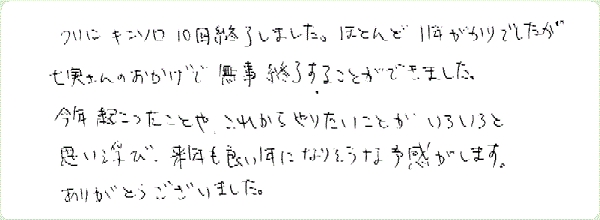 クリニ キンソロ 10回終了しました。ほとんど 1年がかりでしたが
七実さんのおかげで 無事 終了することができました。
今年 起こったことや、これからやりたいことが いろいろと
思い浮び、来年も良い1年に なりそうな 予感がします。
ありがとうございました。